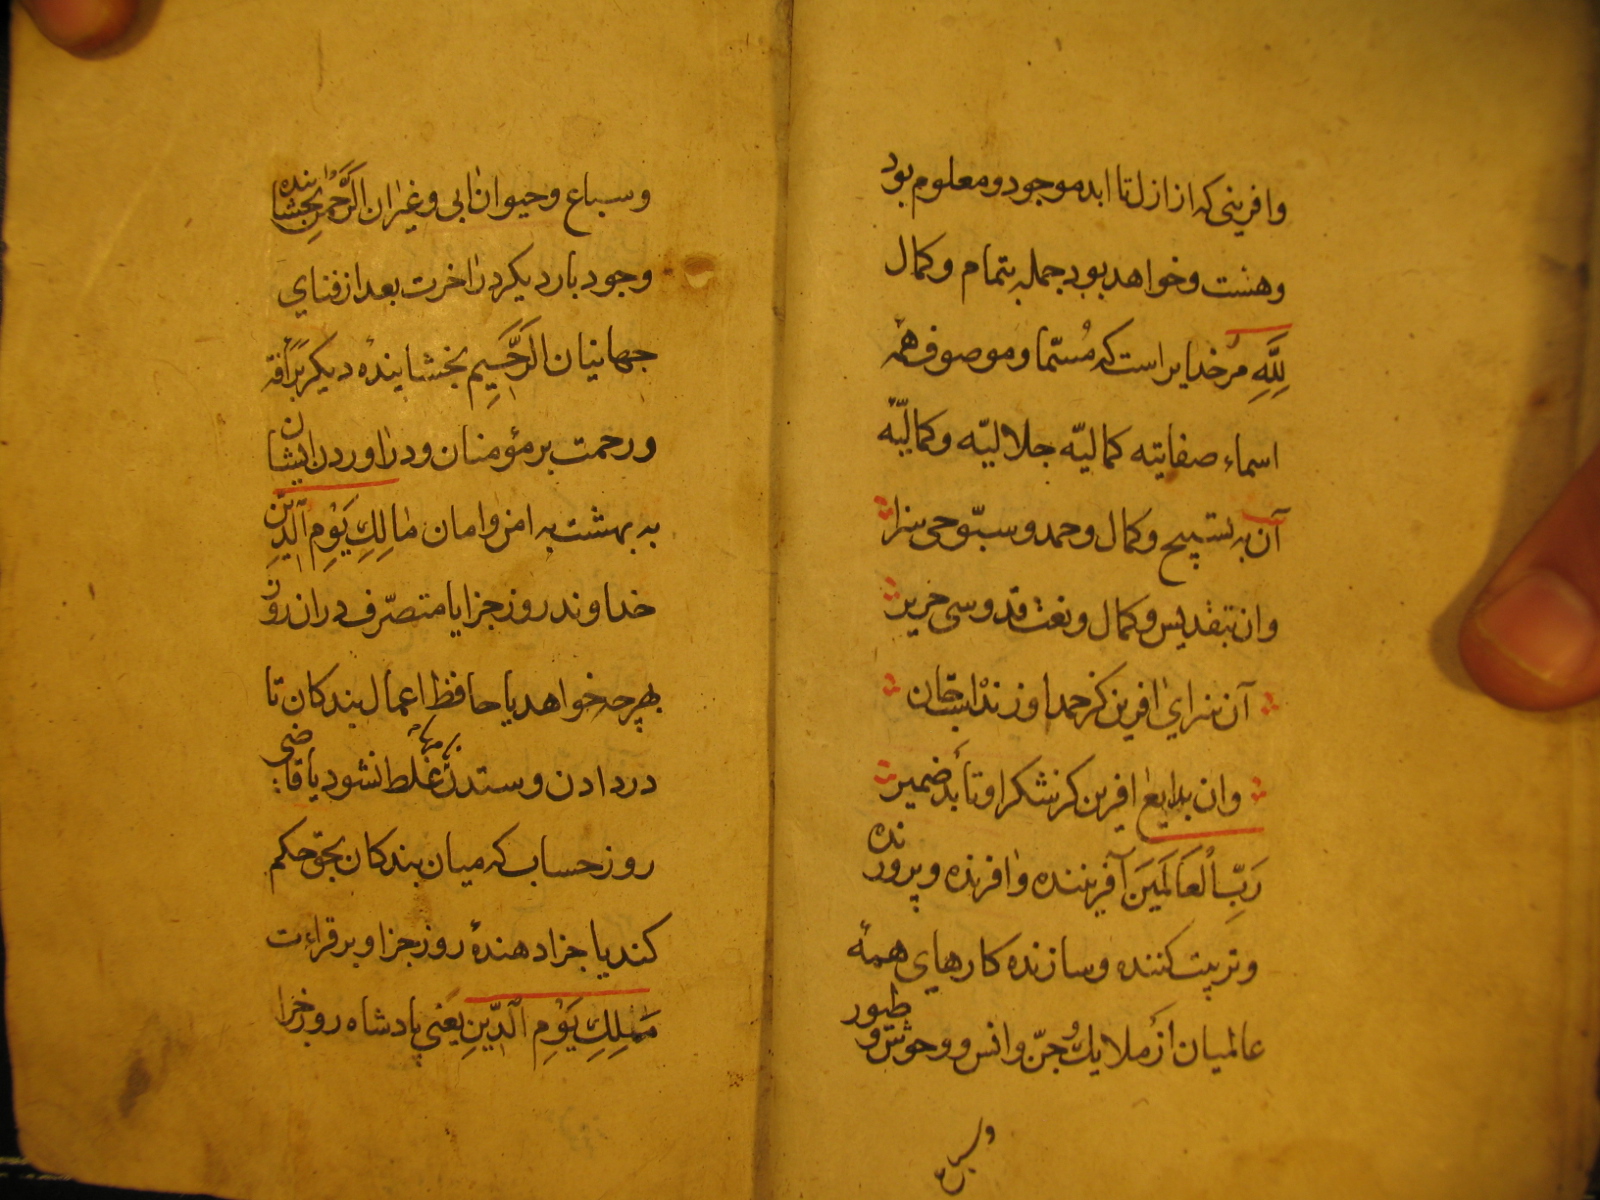 وافرینی که از ازل تا ابد موجود و معلوم بود
وهست وخواهد بود جمله بتمام وکمال
لِلّٰهِ مر خدایراست که مُسمّا وموصوف همهٔ
اسماء صفاتیه کمالیّه جلالیّه وکمالیّهٔ
آن به تسبیح وکمال وحمد و سبّوحی سزا
وان بتقدیس وکمال ونعت قدوسی
آن سزای افرین کز حمد او زنداست جان
وان بدایع افرین کز شکر او ضمیر
رَبِّ ٱلْعَالَمِینَ آفریننده وافرنده وپرورنده
وتربیت کننده وسازنده کارهای همهٔ
عالمیان از ملایک وجنّ وانس و وحوش و طیور
وسباع
وسباع وحیوان ابی وغیران الرَّحْمٰنِ بخشاینده
وجود بار دیکر در اخرت بعد از فنای
جهانیان الرَّحِیمِ بخشاینده دیکر
ورحمت بر مؤمنان ودر اوردن ایشان
به بهشت به امن وامان مالِكِ یَوْمِ ٱلدِّینِ
خداوند روز جزا یا متصرّف دران روز
بهرچه خواهد یا حافظ اعمال بندکان تا
در دادن وستدن غلط نشود یا قاضی
روز حساب که میان بندکان بحق حکم
کند یا جزا دهندهٔ روز جزا و بر قراءت
مَلِكِ یَوْمِ ٱلدِّینِ یعنی پادشاه روز جزا